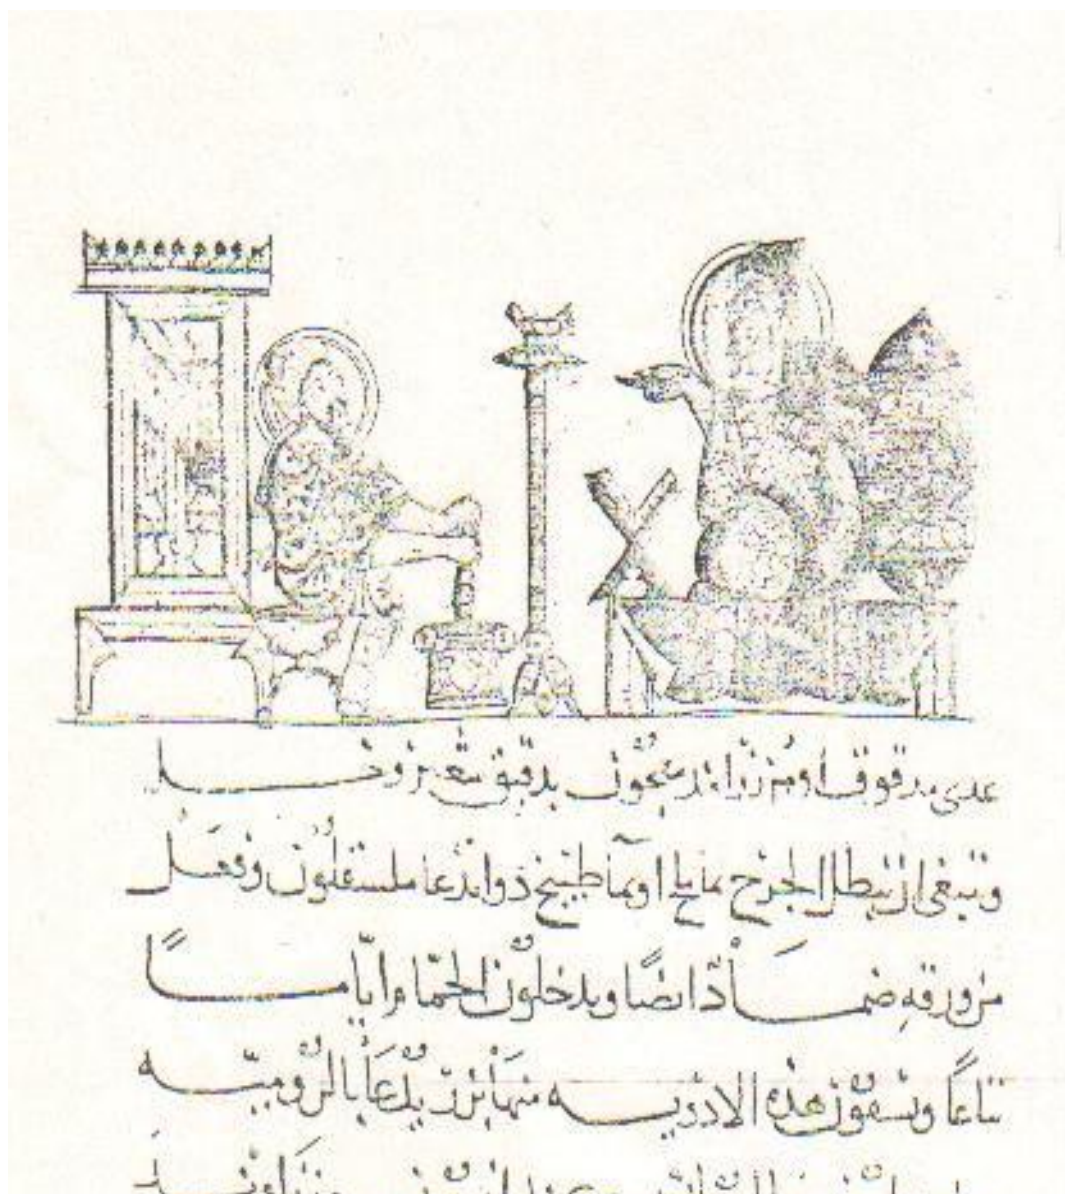 مدقوقا او من زراوند يعجنون بدقيق شعير وخل
وينبغى ان يبطل الجرح بماء مالح او بماء طبيخ دواء يدعا ملسفلون
من ورقه ضماداً ايضاً ويدخلون الحمّام ايّاماً
تباعاً ويسقون هذه الادويه منها بزر يدعا بالروميّه